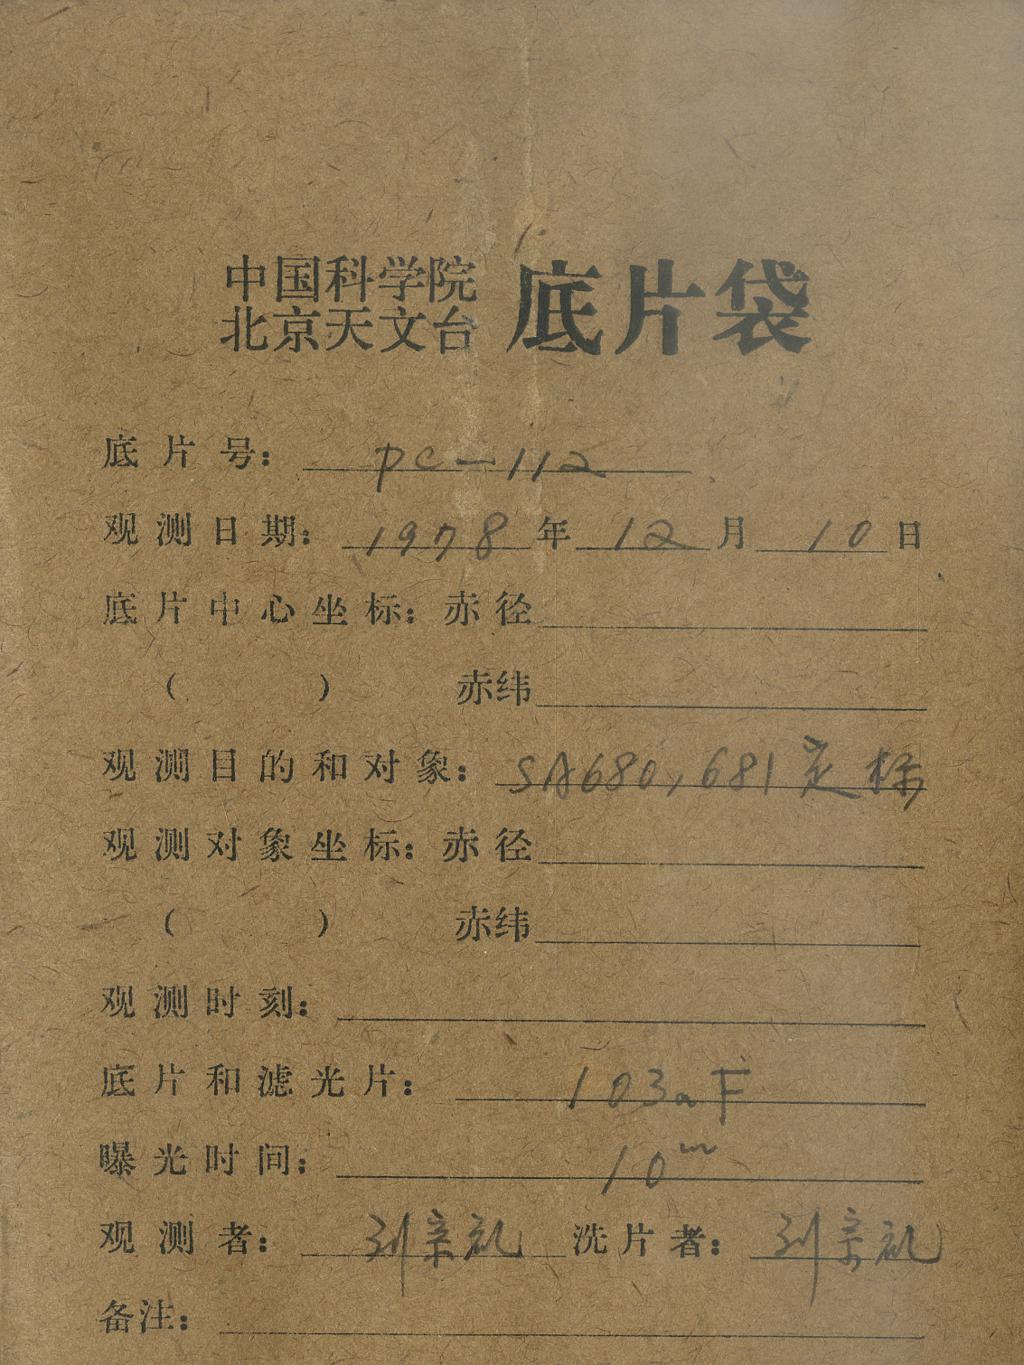 中国科学院
北京天文台 底片袋
底片号： PC-112
观测日期： 1978年 12月 10日
底片中心坐标：赤径
（ ） 赤纬
观测目的和对象： SA680,681定标
观测对象坐标：赤径
（ ） 赤纬
观测时刻：
底片和滤光片： 103aF
曝光时间： 10ᵐ
观测者： 刘宗礼 洗片者： 刘宗礼
备注：